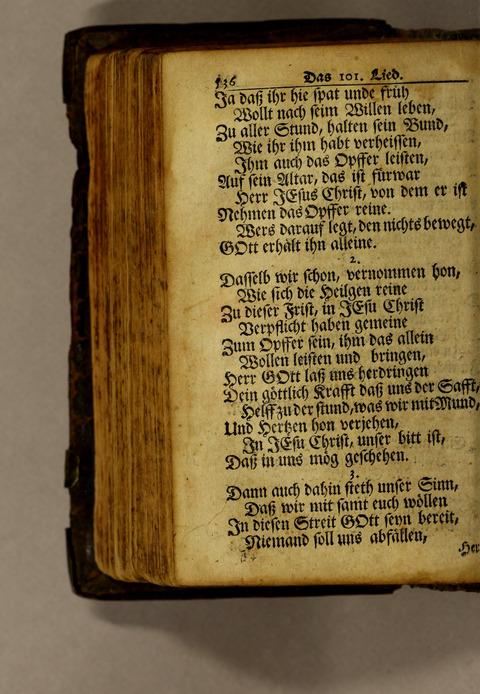 536 Das 101. Lied.
Ja daß ihr hie spat unde früh
Wollt nach seim Willen leben,
Zu aller Stund, halten sein Bund,
Wie ihr ihm habt verheissen,
Ihm auch das Opffer leisten,
Auf sein Altar, das ist fürwar
Herr JEsus Christ, von dem er ist
Nehmen das Opffer reine.
Wers darauf legt, den nichts bewegt,
GOtt erhält ihn alleine.
2.
Dasselb wir schon, vernommen hon,
Wie sich die Heilgen reine
Zu dieser Frist, in JEsu Christ
Verpflicht haben gemeine
Zum Opffer sein, ihm das allein
Wollen leisten und bringen,
Herr GOtt laß uns herdringen
Dein göttlich Krafft daß uns der Safft,
Helff zu der stund, was wir mit Mund,
Und Hertzen hon verjehen,
In JEsu Christ, unser bitt ist,
Daß in uns mög geschehen.
3.
Dann auch dahin steth unser Sinn,
Daß wir mit samt euch wöllen
In diesen Streit GOtt seyn bereit,
Niemand soll uns abfällen,
Her